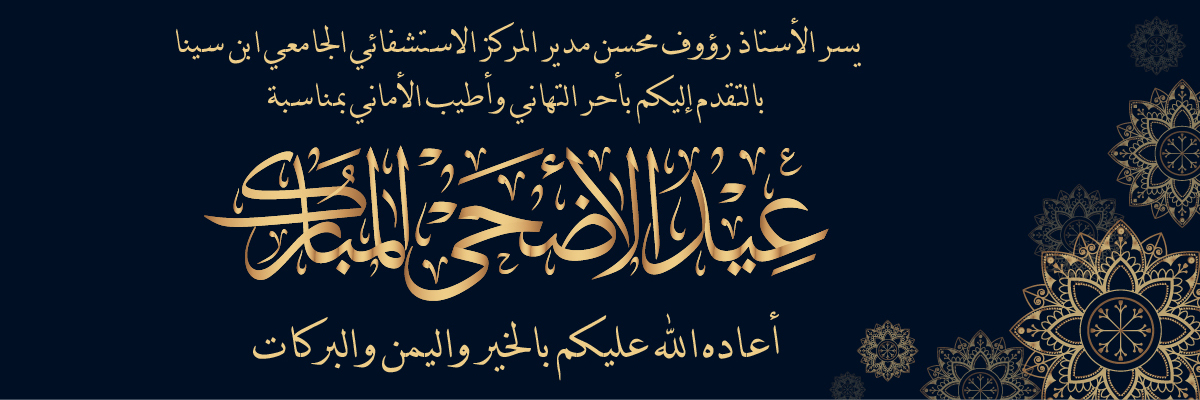 يسر الأستاذ رؤوف محسن مدير المركز الاستشفائي الجامعي ابن سينا
بالتقدم إليكم بأحر التهاني وأطيب الأماني بمناسبة
عيد الأضحى المبارك
أعاده الله عليكم بالخير واليمن والبركات